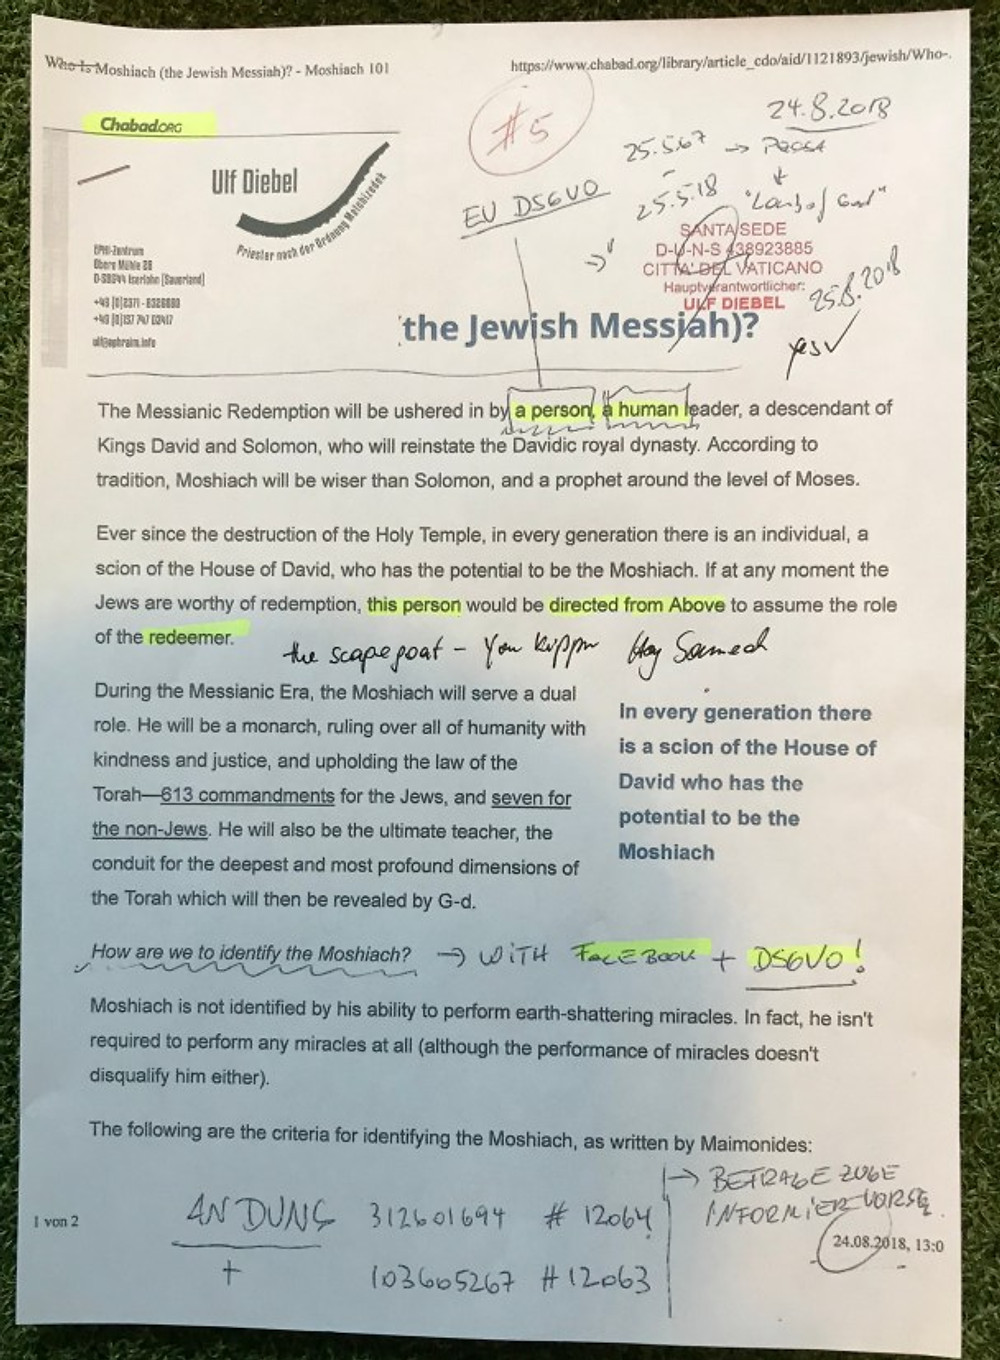 Who Is Moshiach (the Jewish Messiah)? - Moshiach 101
https://www.chabad.org/library/article_cdo/aid/1121893/jewish/Who-.
Chabad.ORG
#5
24.8.2018
25.5.67 →
25.5.18
EU DSGVO
Ulf Diebel
Priester nach der Ordnung Melchizedek
EPHI-Zentrum
Obere Mühle 28
Iserlohn (Sauerland)
ulf@ephraim.info
SANTA SEDE
D-U-N-S 438923885
CITTA' DEL VATICANO
Hauptverantwortlicher:
ULF DIEBEL
25.8.2018
yes
the Jewish Messiah)?
The Messianic Redemption will be ushered in by a person, a human leader, a descendant of
Kings David and Solomon, who will reinstate the Davidic royal dynasty. According to
tradition, Moshiach will be wiser than Solomon, and a prophet around the level of Moses.
Ever since the destruction of the Holy Temple, in every generation there is an individual, a
scion of the House of David, who has the potential to be the Moshiach. If at any moment the
Jews are worthy of redemption, this person would be directed from Above to assume the role
of the redeemer.
the scapegoat - Yom Kippur
During the Messianic Era, the Moshiach will serve a dual
role. He will be a monarch, ruling over all of humanity with
kindness and justice, and upholding the law of the
Torah—613 commandments for the Jews, and seven for
the non-Jews. He will also be the ultimate teacher, the
conduit for the deepest and most profound dimensions of
the Torah which will then be revealed by G-d.
In every generation there
is a scion of the House of
David who has the
potential to be the
Moshiach
How are we to identify the Moshiach? → WITH FACEBOOK + DSGVO!
Moshiach is not identified by his ability to perform earth-shattering miracles. In fact, he isn't
required to perform any miracles at all (although the performance of miracles doesn't
disqualify him either).
The following are the criteria for identifying the Moshiach, as written by Maimonides:
1 von 2
312601694 # 12064
+ 103605267 # 12063
24.08.2018, 13:0